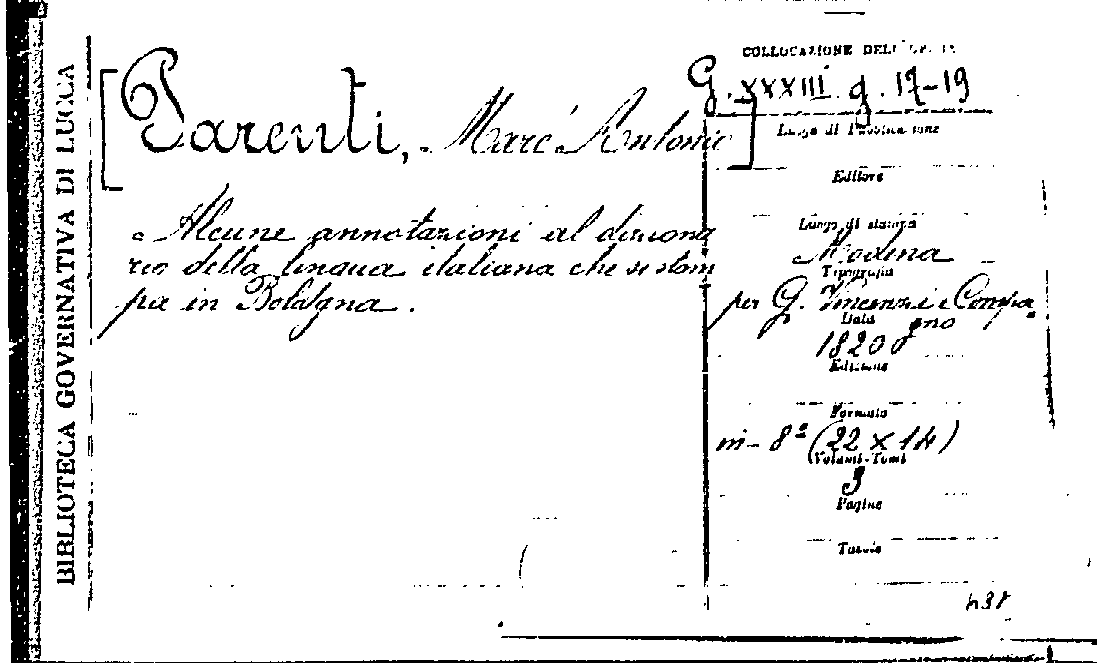 BIBLIOTECA GOVERNATIVA DI LUCCA
[Parenti, Marc'Antonio]
Alcune annotazioni al diziona
rio della lingua italiana che si stam
pa in Bologna.
COLLOCAZIONE DELL'
G. XXXIII. g. 17-19
Luogo di Pubblicazione
Editore
Luogo di stampa
Modena
Tipografia
per G. Vincenzi e Compa
gno
Data
1820
Edizione
Formato
in-8º (22 x 14)
Volumi-Tomi
3
Pagine
Tavole